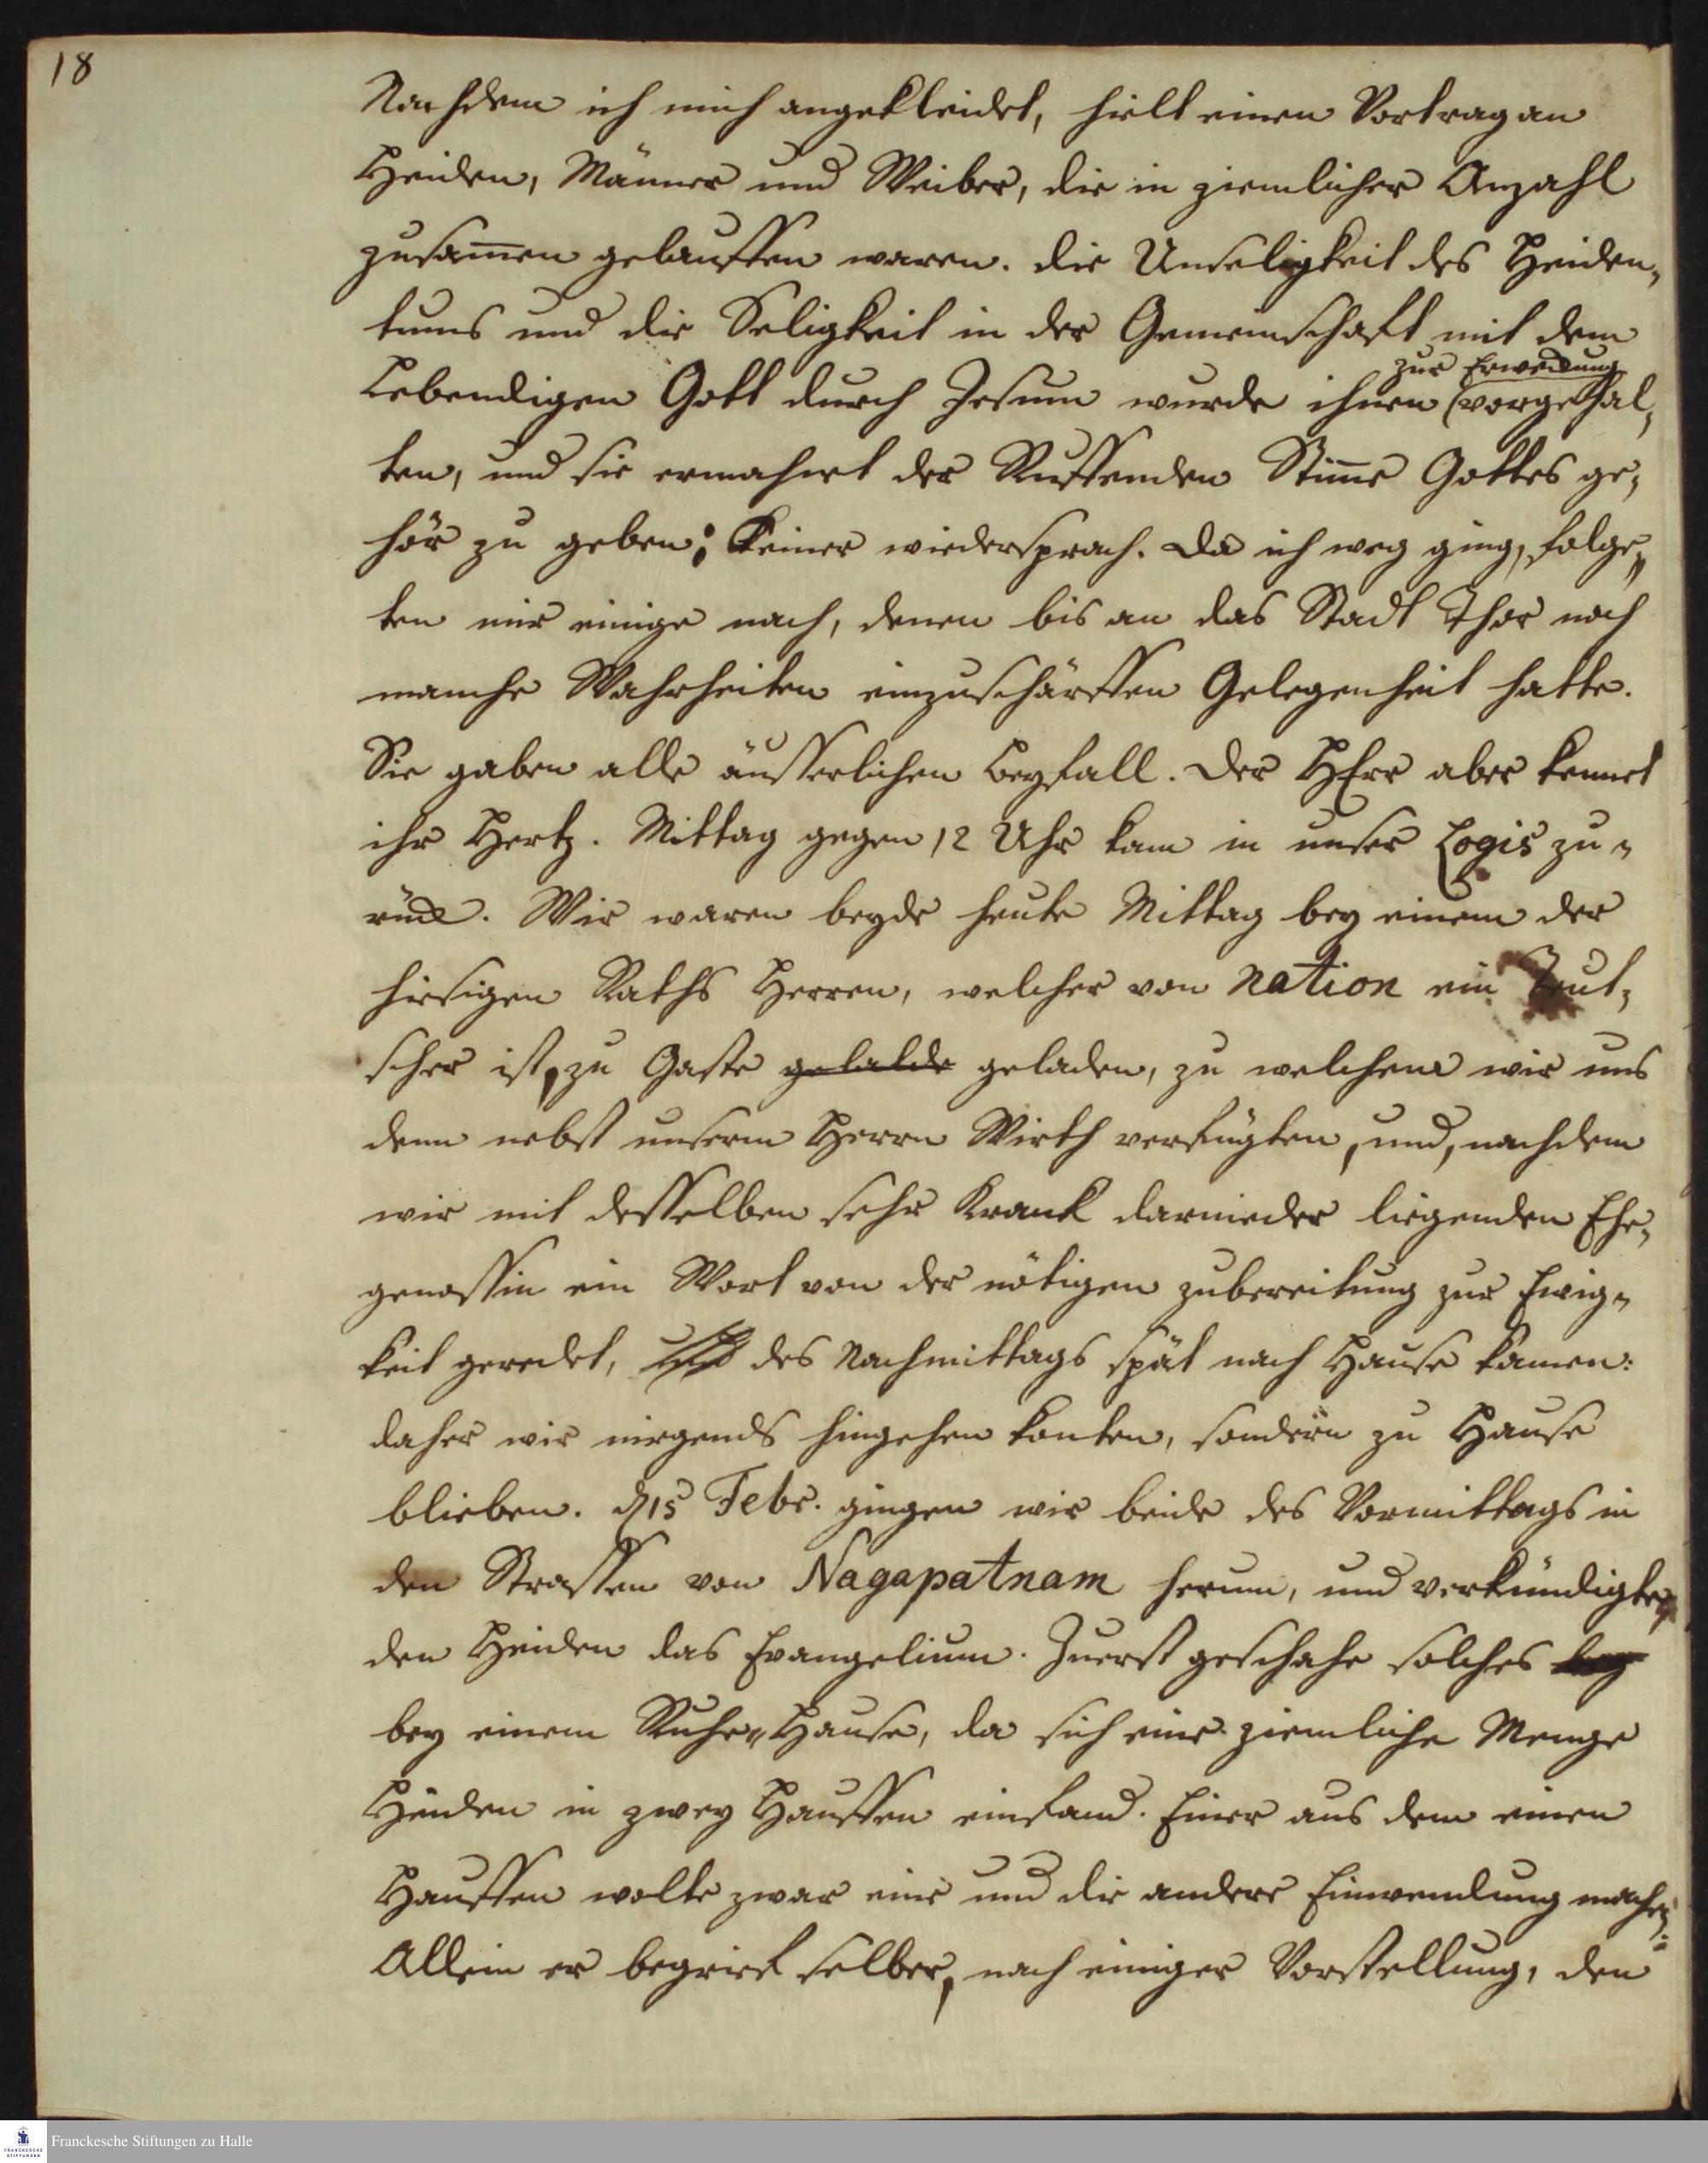 18
Nachdem ich mich angekleidet, hielt einen Vortrag an
Heiden, Männer und Weiber, die in ziemlicher Anzahl
zusam̅en gelauffen waren. die Unseligkeit des Heiden,,
tums und die Seligkeit in der Gemeinschaft mit dem
zur Erweckung
Lebendigen Gott durch Jesum wurde ihnen (vorgehal,,
ten, und sie ermahnet der Ruffenden Stim̅e Gottes ge,,
hör zu geben; keiner wiedersprach. Da ich weg ging, folge,,
ten mir einige nach, denen bis an das Stadt Thor noch
manche Wahrheiten einzuschärffen Gelegenheit hatte.
Sie gaben alle äusserlichen beyfall. der HErr aber kennet
ihr Hertz. Mittag gegen 12 Uhr kam in unser Logis zu,,
rück. Wir waren beyde heute Mittag bey einem der
hiesigen Raths Herren, welcher von nation ein Teut,,
scher ist, zu Gaste gelalde geladen, zu welchem wir uns
denn nebst unserm Herrn Wirth verfügten, und, nachdem
wir mit desselben sehr Kranck darnieder liegenden Ehe,,
genossin ein Wort von der nötigen zubereitung zur Ewig,,
keit geredet, des Nachmittags spät nach Hause kamen:
daher wir nirgends hingehen konten, sondern zu Hause
blieben. d 15 Febr. gingen wir beide des Vormittags in
den Strassen von Nagapatnam herum, und verkündigten
den Heiden das Evangelium. Zuerst geschahe solches bey
bey einem Ruhe,,Hause, da sich eine ziemliche Menge
Heiden in zwey Hauffen einfand. Einer aus dem einen
Hauffen wolte zwar eine und die andere Einwendung machen:
Allein er begrief selber, nach einiger Vorstellung, den
Franckesche Stiftungen zu Halle
FRANCKESCHE
STIFTUNGEN